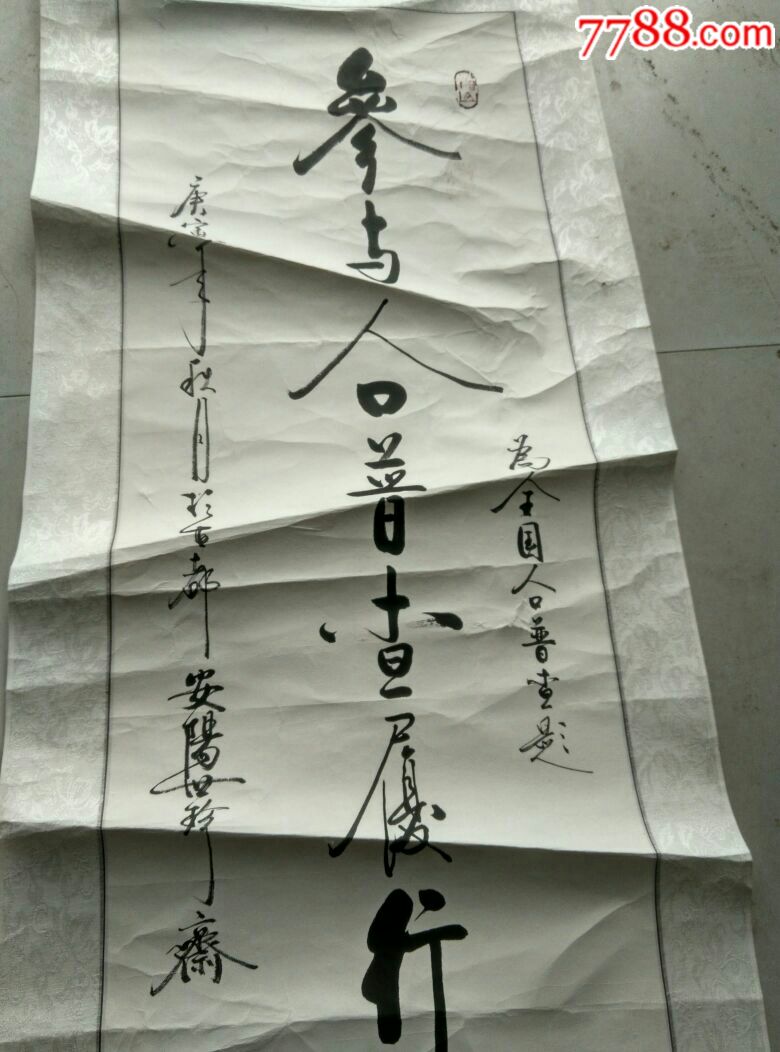 7788.com
为全国人口普查题
参与人口普查履行
庚寅年秋月於古都安陽世珍齋